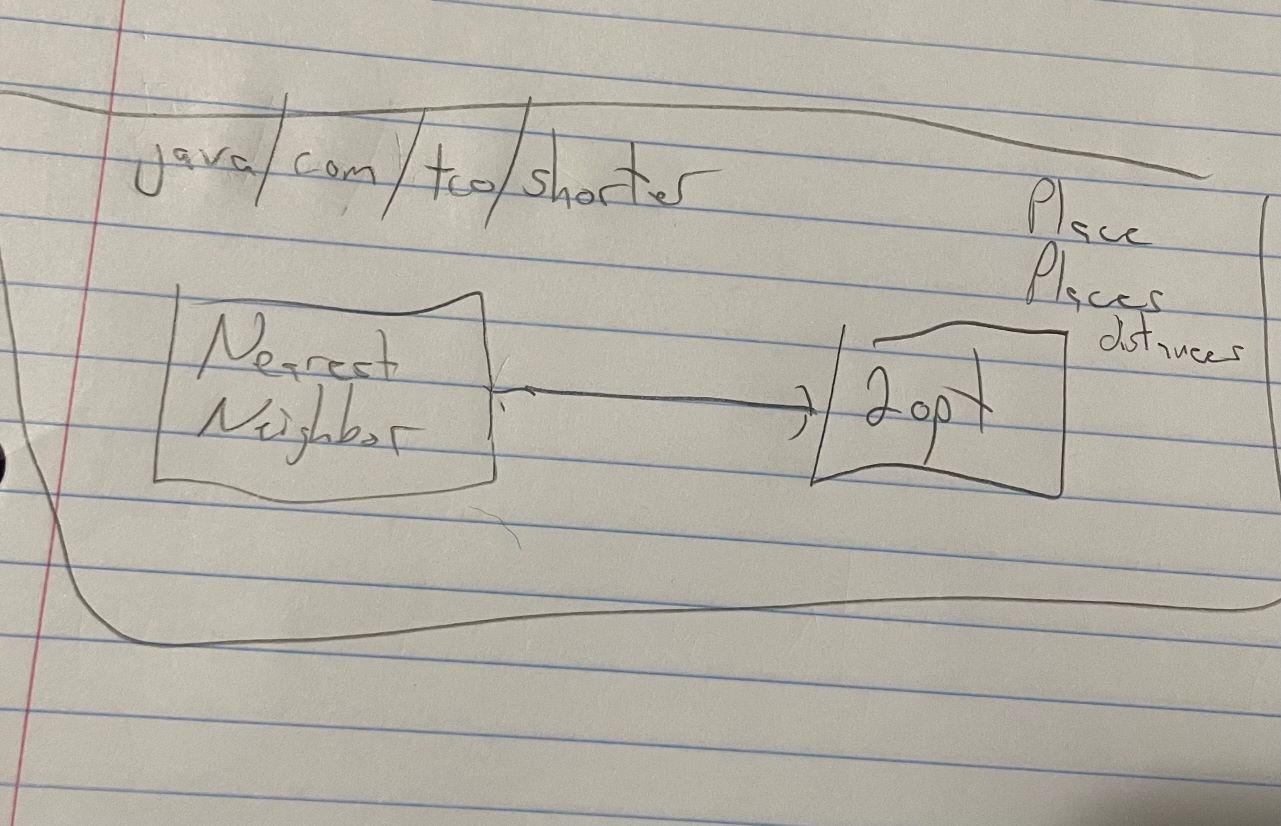 java/com/tco/shorter
Place
Places
distances
Nearest
Neighbor
2opt